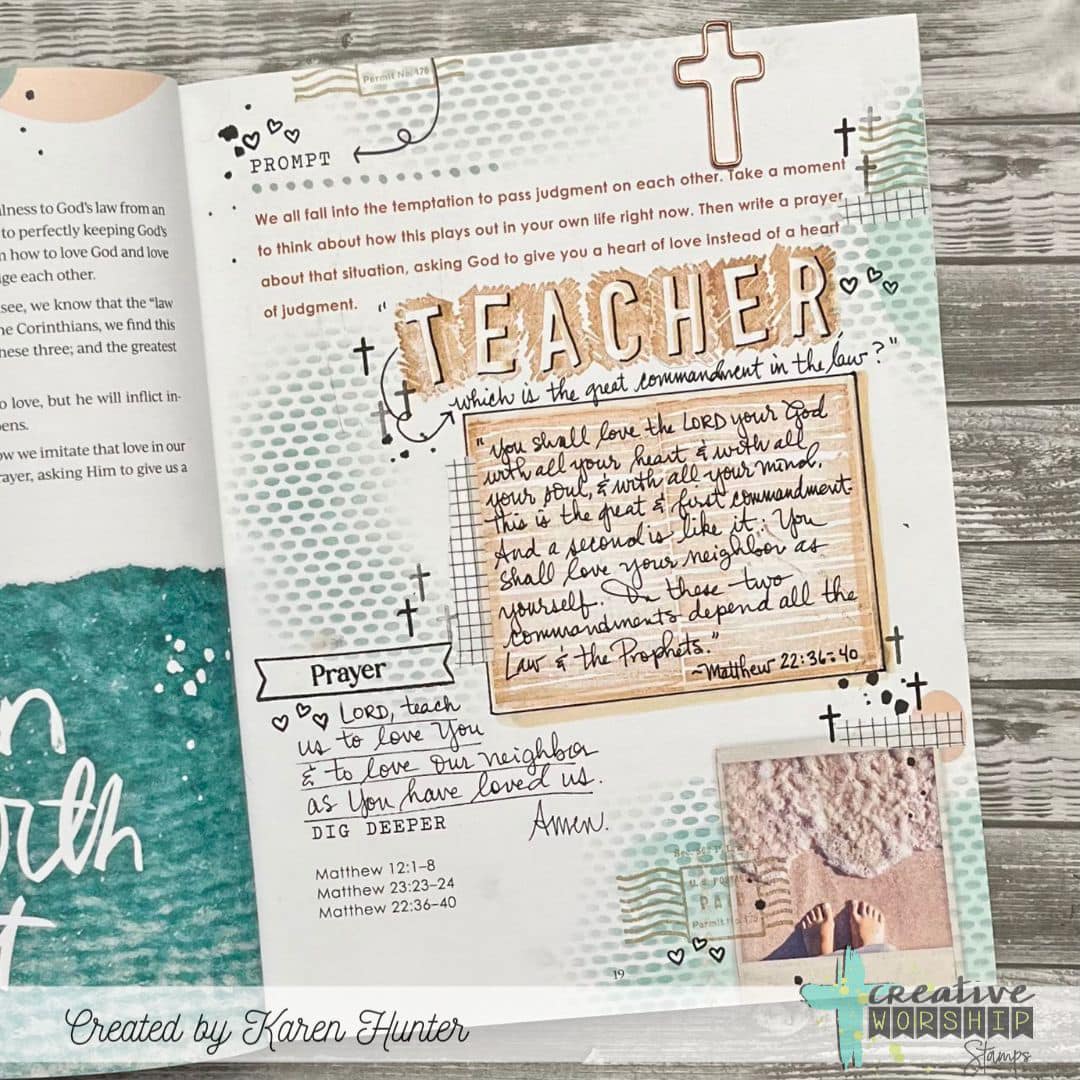 lness to God's law from an
to perfectly keeping God's
how to love God and love
ge each other.
see, we know that the "law
he Corinthians, we find this
hese three; and the greatest
o love, but he will inflict in-
pens.
ow we imitate that love in our
rayer, asking Him to give us a
Permit No. 170
PROMPT
We all fall into the temptation to pass judgment on each other. Take a moment
to think about how this plays out in your own life right now. Then write a prayer
about that situation, asking God to give you a heart of love instead of a heart
of judgment.
"TEACHER,
which is the great commandment in the law?"
"You shall love the LORD your God
with all your heart & with all
your soul, & with all your mind.
This is the great & first commandment.
And a second is like it: You
shall love your neighbor as
yourself. On these two
commandments depend all the
Law & the Prophets."
~Matthew 22:36-40
Prayer
LORD, teach
us to love You
& to love our neighbor
as You have loved us.
Amen.
DIG DEEPER
Matthew 12:1–8
Matthew 23:23–24
Matthew 22:36–40
PAID
Permit No. 170
19
Created by Karen Hunter
creative
WORSHIP
Stamps